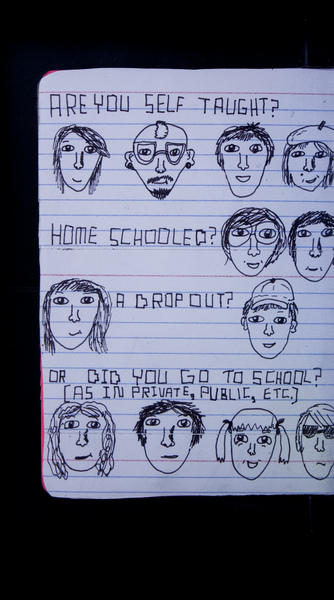 ARE YOU SELF TAUGHT?
HOME SCHOOLED?
A DROPOUT?
OR DID YOU GO TO SCHOOL?
(AS IN PRIVATE, PUBLIC, ETC.)